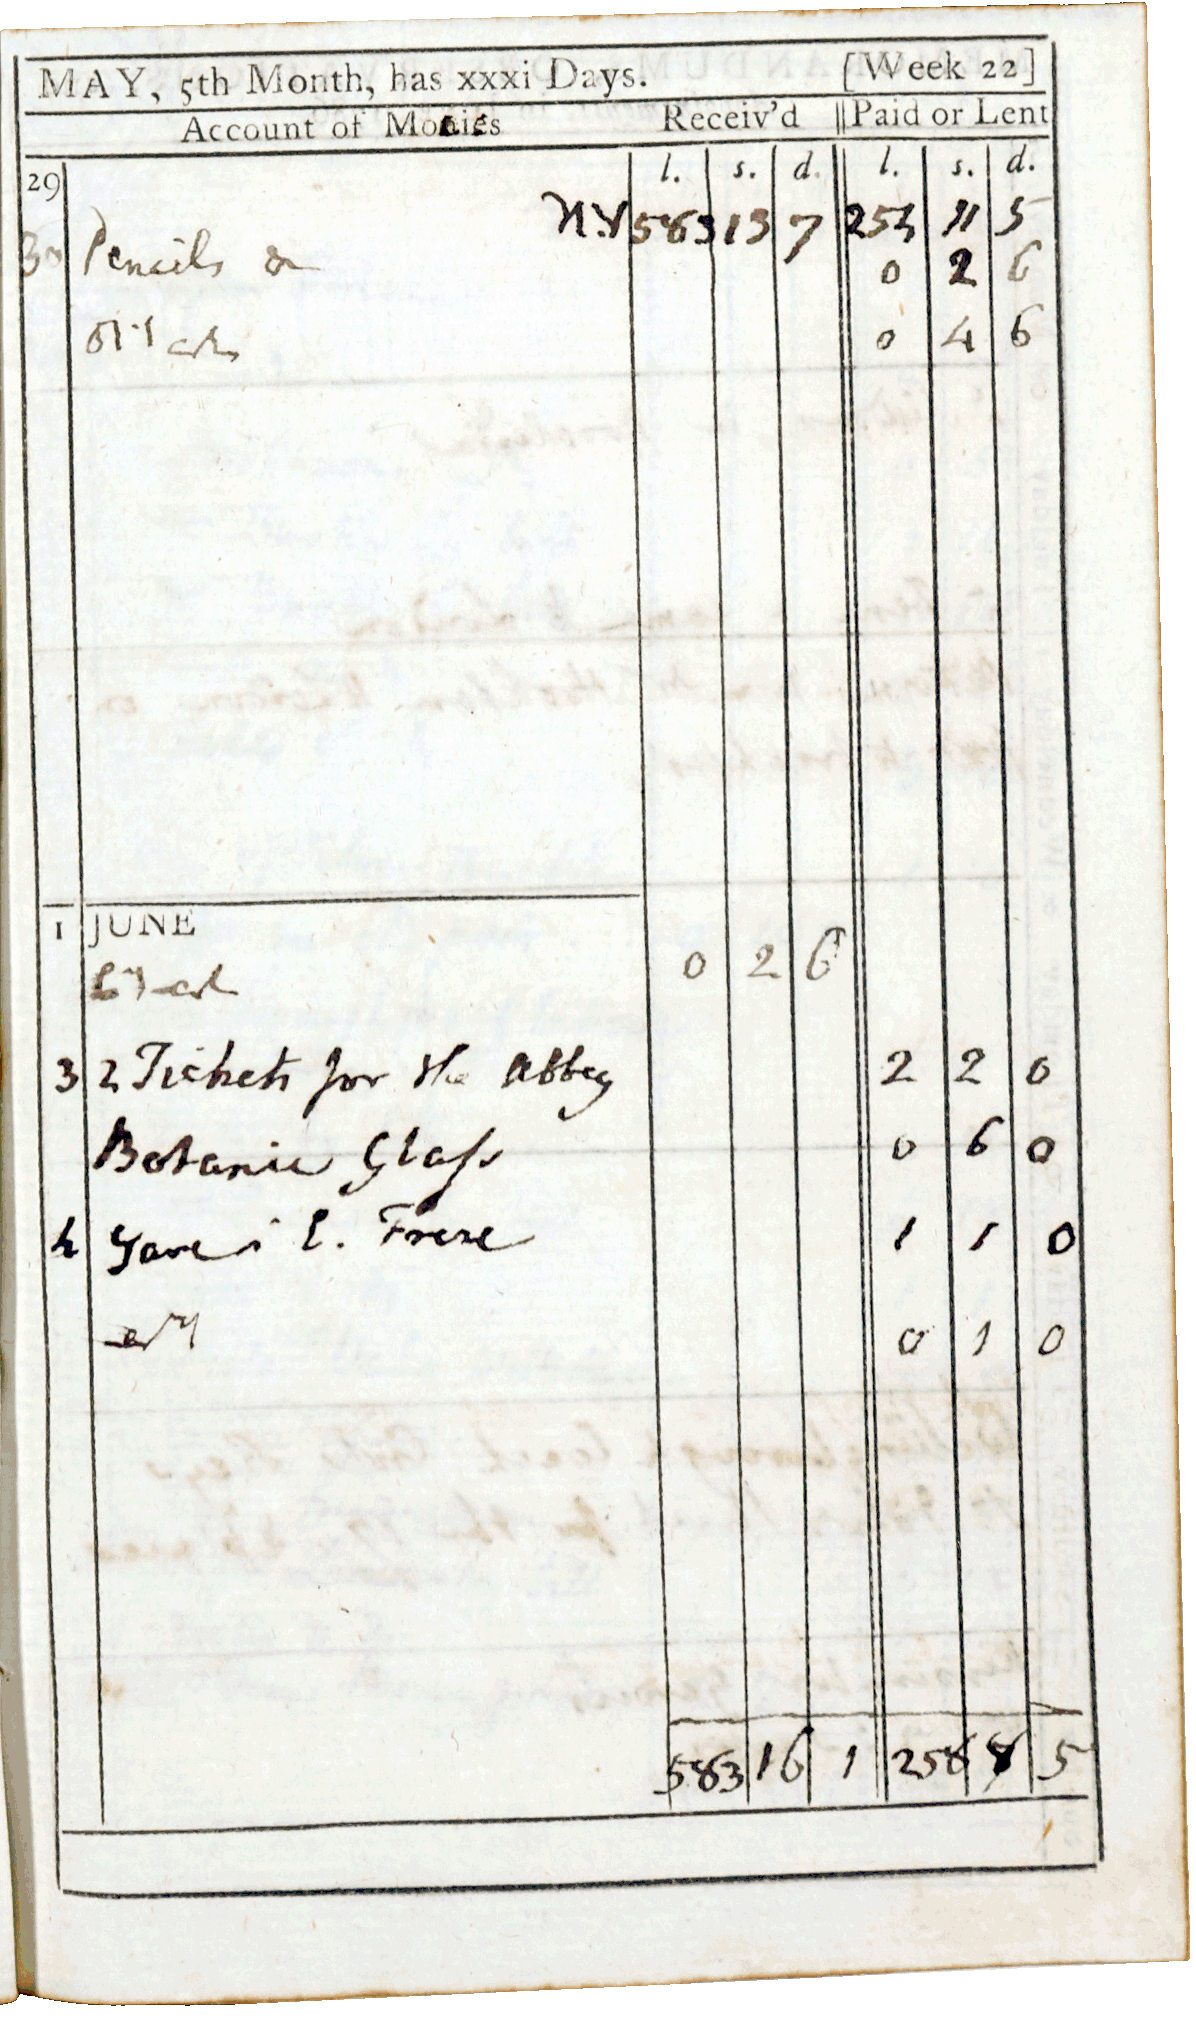 MAY, 5th Month, has xxxi Days. [Week 22]
Account of Monies Receiv'd Paid or Lent
l. s. d. l. s. d.
29
N.Y 583 13 7 254 11 5
30 Pencils &c 0 2 6
0 4 6
1 JUNE
0 2 6
3 2 Tickets for the Abbey 2 2 0
Botanic Glass 0 6 0
4 Gave E. Frere 1 1 0
0 1 0
583 16 1 258 8 5